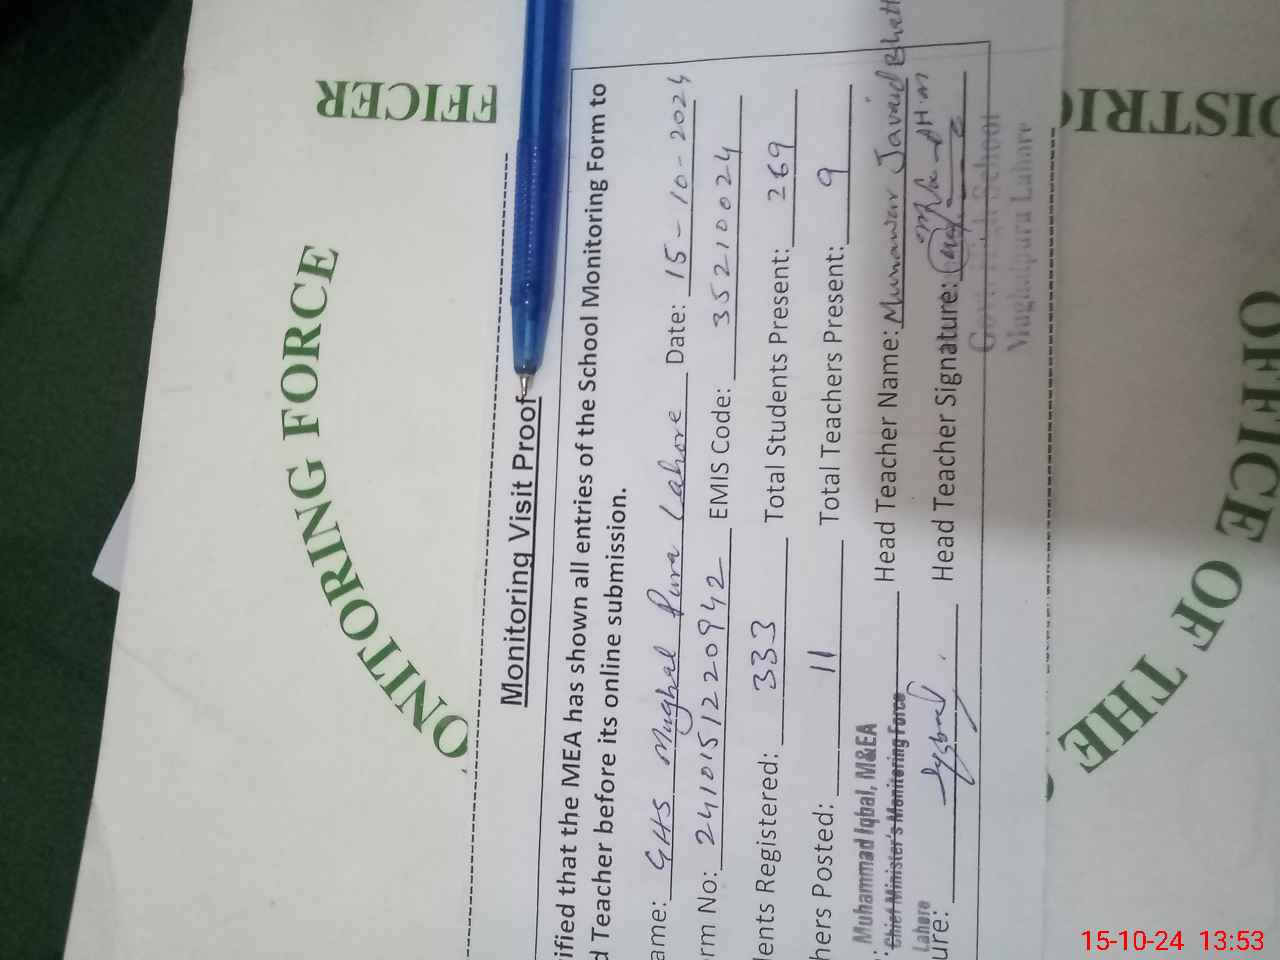 Monitoring Visit Proof
ified that the MEA has shown all entries of the School Monitoring Form to
d Teacher before its online submission.
ame: GHS Mughal Pura Lahore Date: 15-10-2024
rm No: 2410151220942 EMIS Code: 35210024
dents Registered: 333 Total Students Present: 269
hers Posted: 11 Total Teachers Present: 9
: Muhammad Iqbal, M&EA Head Teacher Name: Munawar Javaid Bhatt
Chief Minister's Monitoring Force
Lahore
ure: Head Teacher Signature:
Govt. High School
Mughalpura Lahore
ONITORING FORCE
FFICER
DISTRIC
OFFICE OF THE
15-10-24 13:53